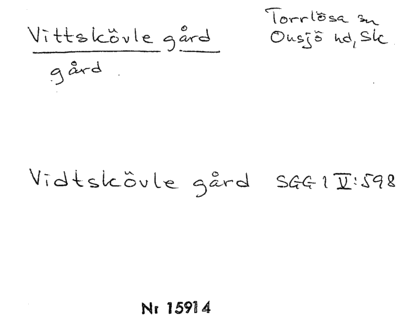 Vittskövle gård
gård
Torrlösa sn
Onsjö hd, Sk
Vidtskövle gård SGG 1 V:598
Nr 15914